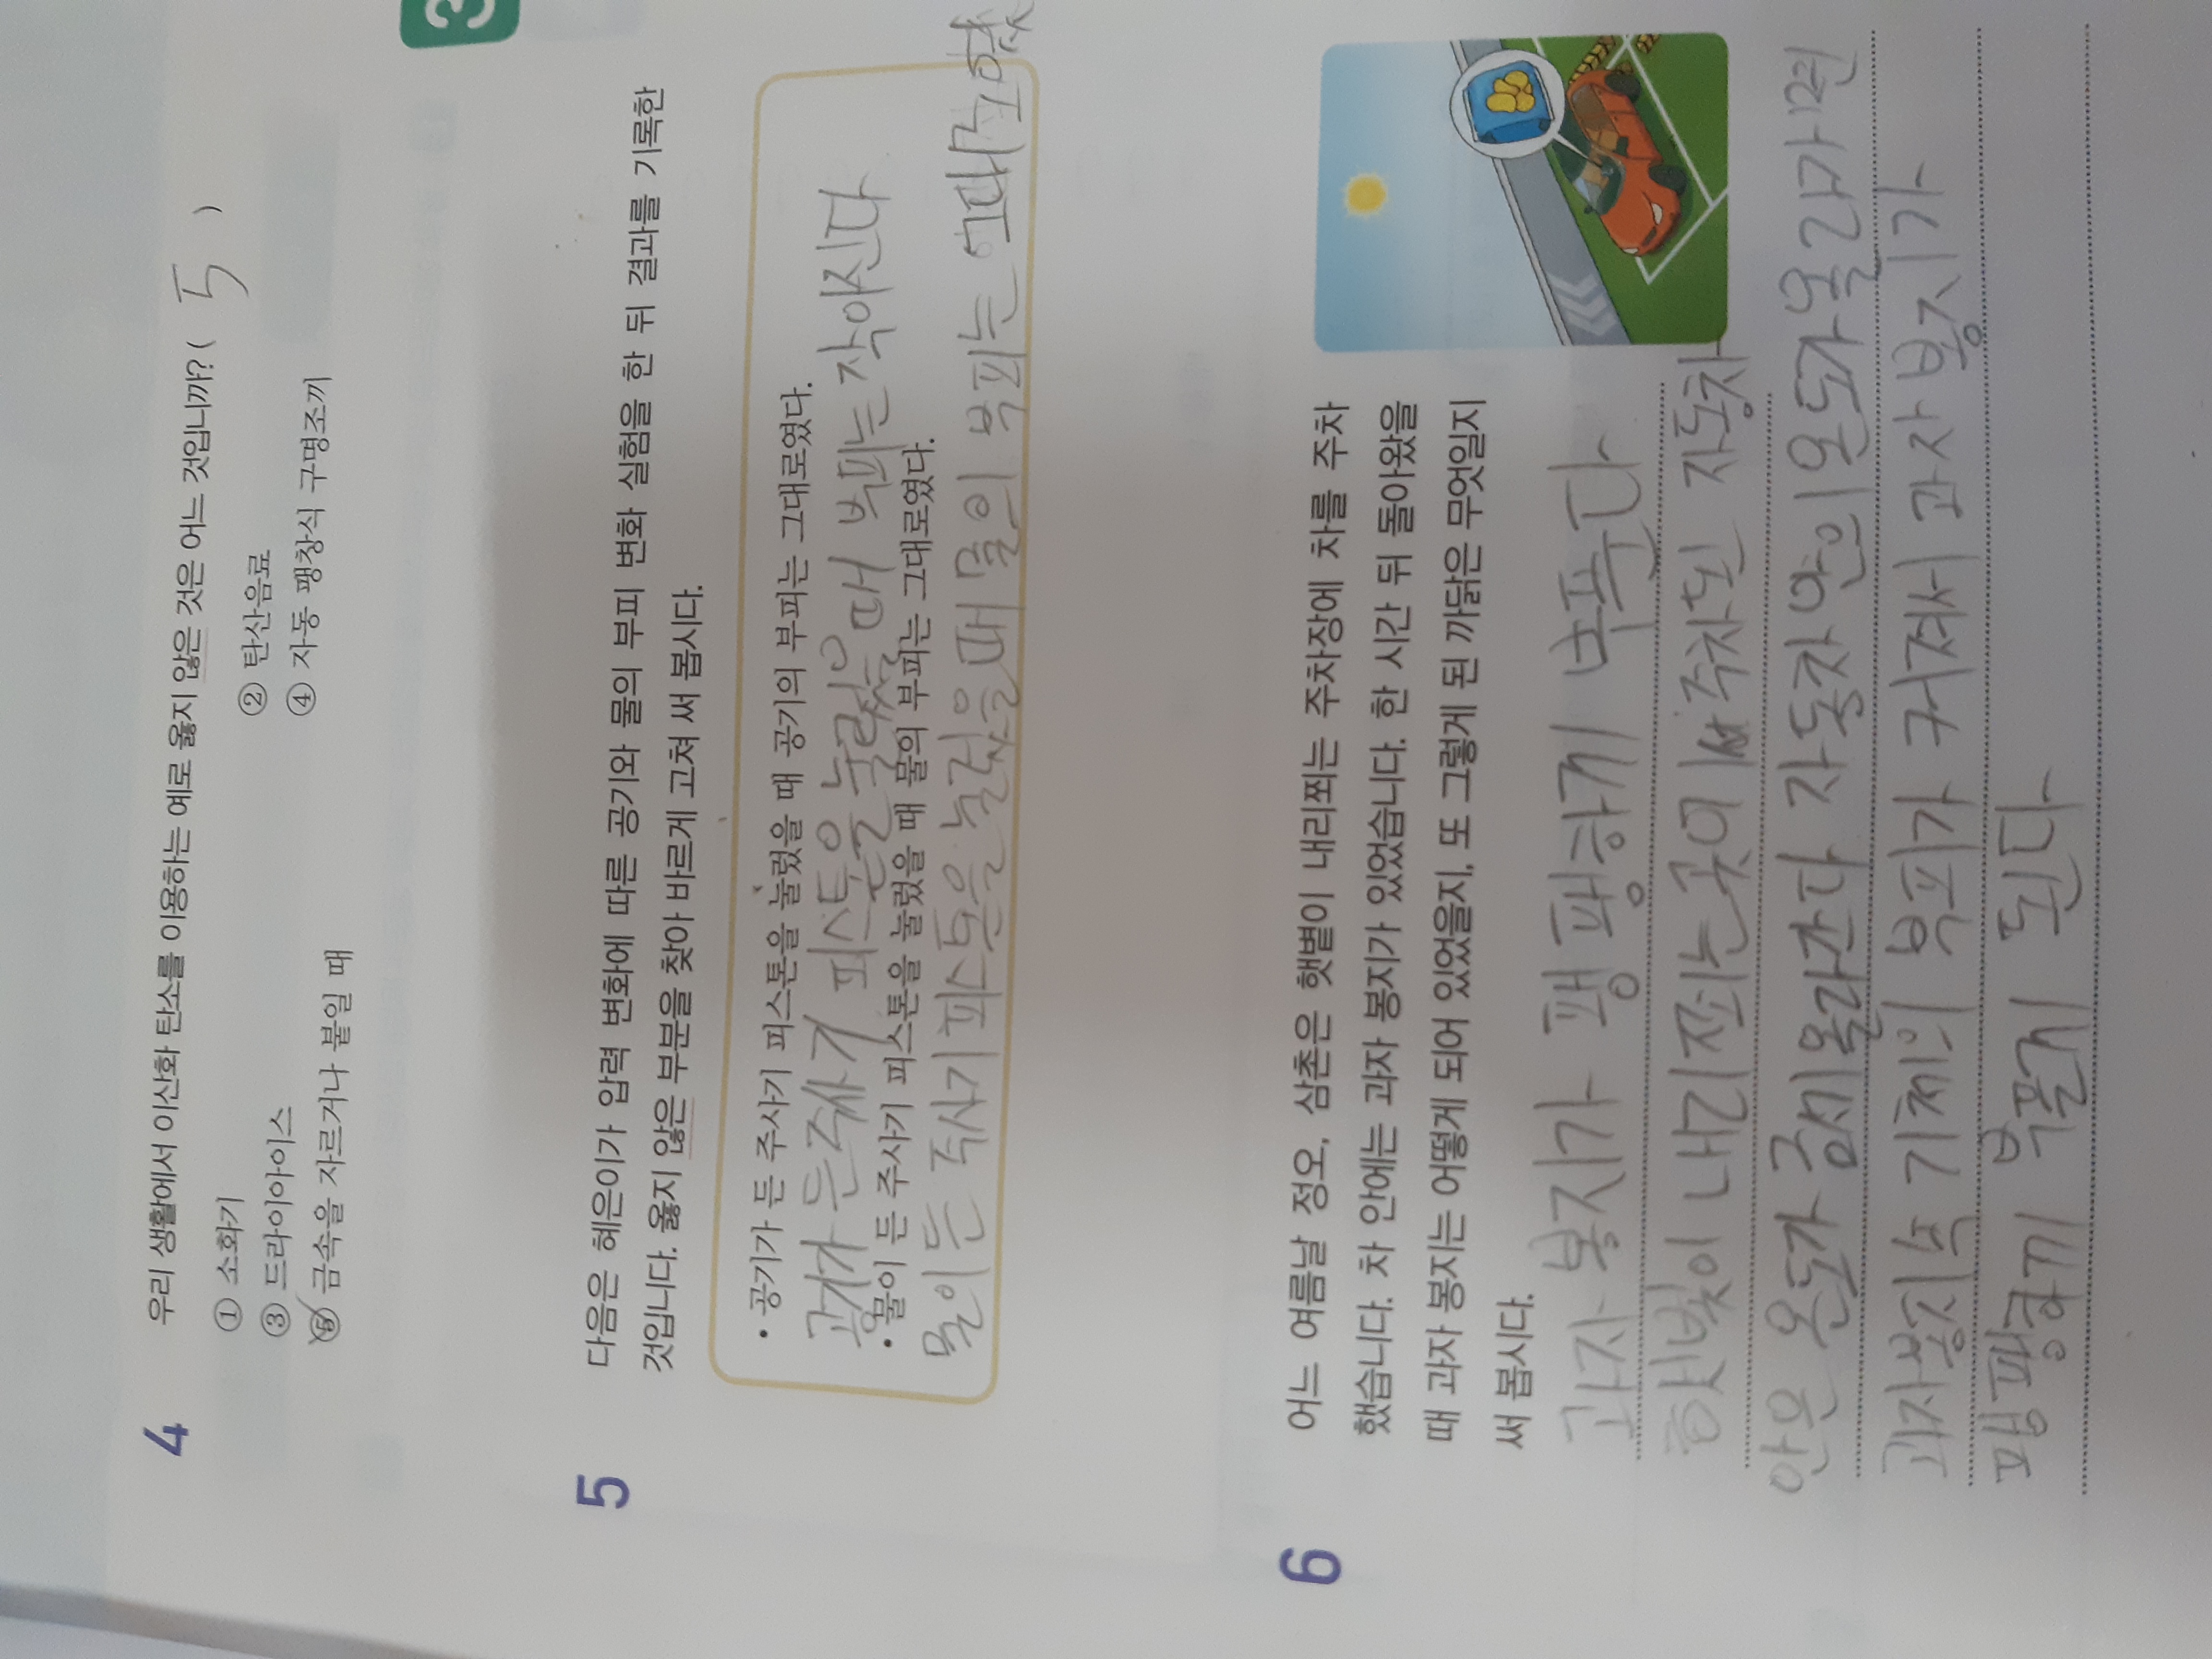 3
4 우리 생활에서 이산화 탄소를 이용하는 예로 옳지 않은 것은 어느 것입니까? ( 5 )
① 소화기 ② 탄산음료
③ 드라이아이스 ④ 자동 팽창식 구명조끼
⑤ 금속을 자르거나 붙일 때
5 다음은 혜은이가 압력 변화에 따른 공기와 물의 부피 변화 실험을 한 뒤 결과를 기록한
것입니다. 옳지 않은 부분을 찾아 바르게 고쳐 써 봅시다.
• 공기가 든 주사기 피스톤을 눌렀을 때 공기의 부피는 그대로였다.
공기가 든 주사기 피스톤을 눌렀을 때 부피는 작아진다
• 물이 든 주사기 피스톤을 눌렀을 때 물의 부피는 그대로였다.
물이 든 주사기 피스톤을 눌렀을 때 물의 부피는
6 어느 여름날 정오, 삼촌은 햇볕이 내리쬐는 주차장에 차를 주차
했습니다. 차 안에는 과자 봉지가 있었습니다. 한 시간 뒤 돌아왔을
때 과자 봉지는 어떻게 되어 있었을지, 또 그렇게 된 까닭은 무엇일지
써 봅시다.
과자 봉지가 팽팽하게 부푼다
햇빛이 내리쬐는 곳에 주차된 자동차
안은 온도가 금세 올라간다 자동차 안의 온도가 올라가면
과자봉지 속 기체의 부피가 커져서 과자 봉지가
팽팽하게 부풀게 된다